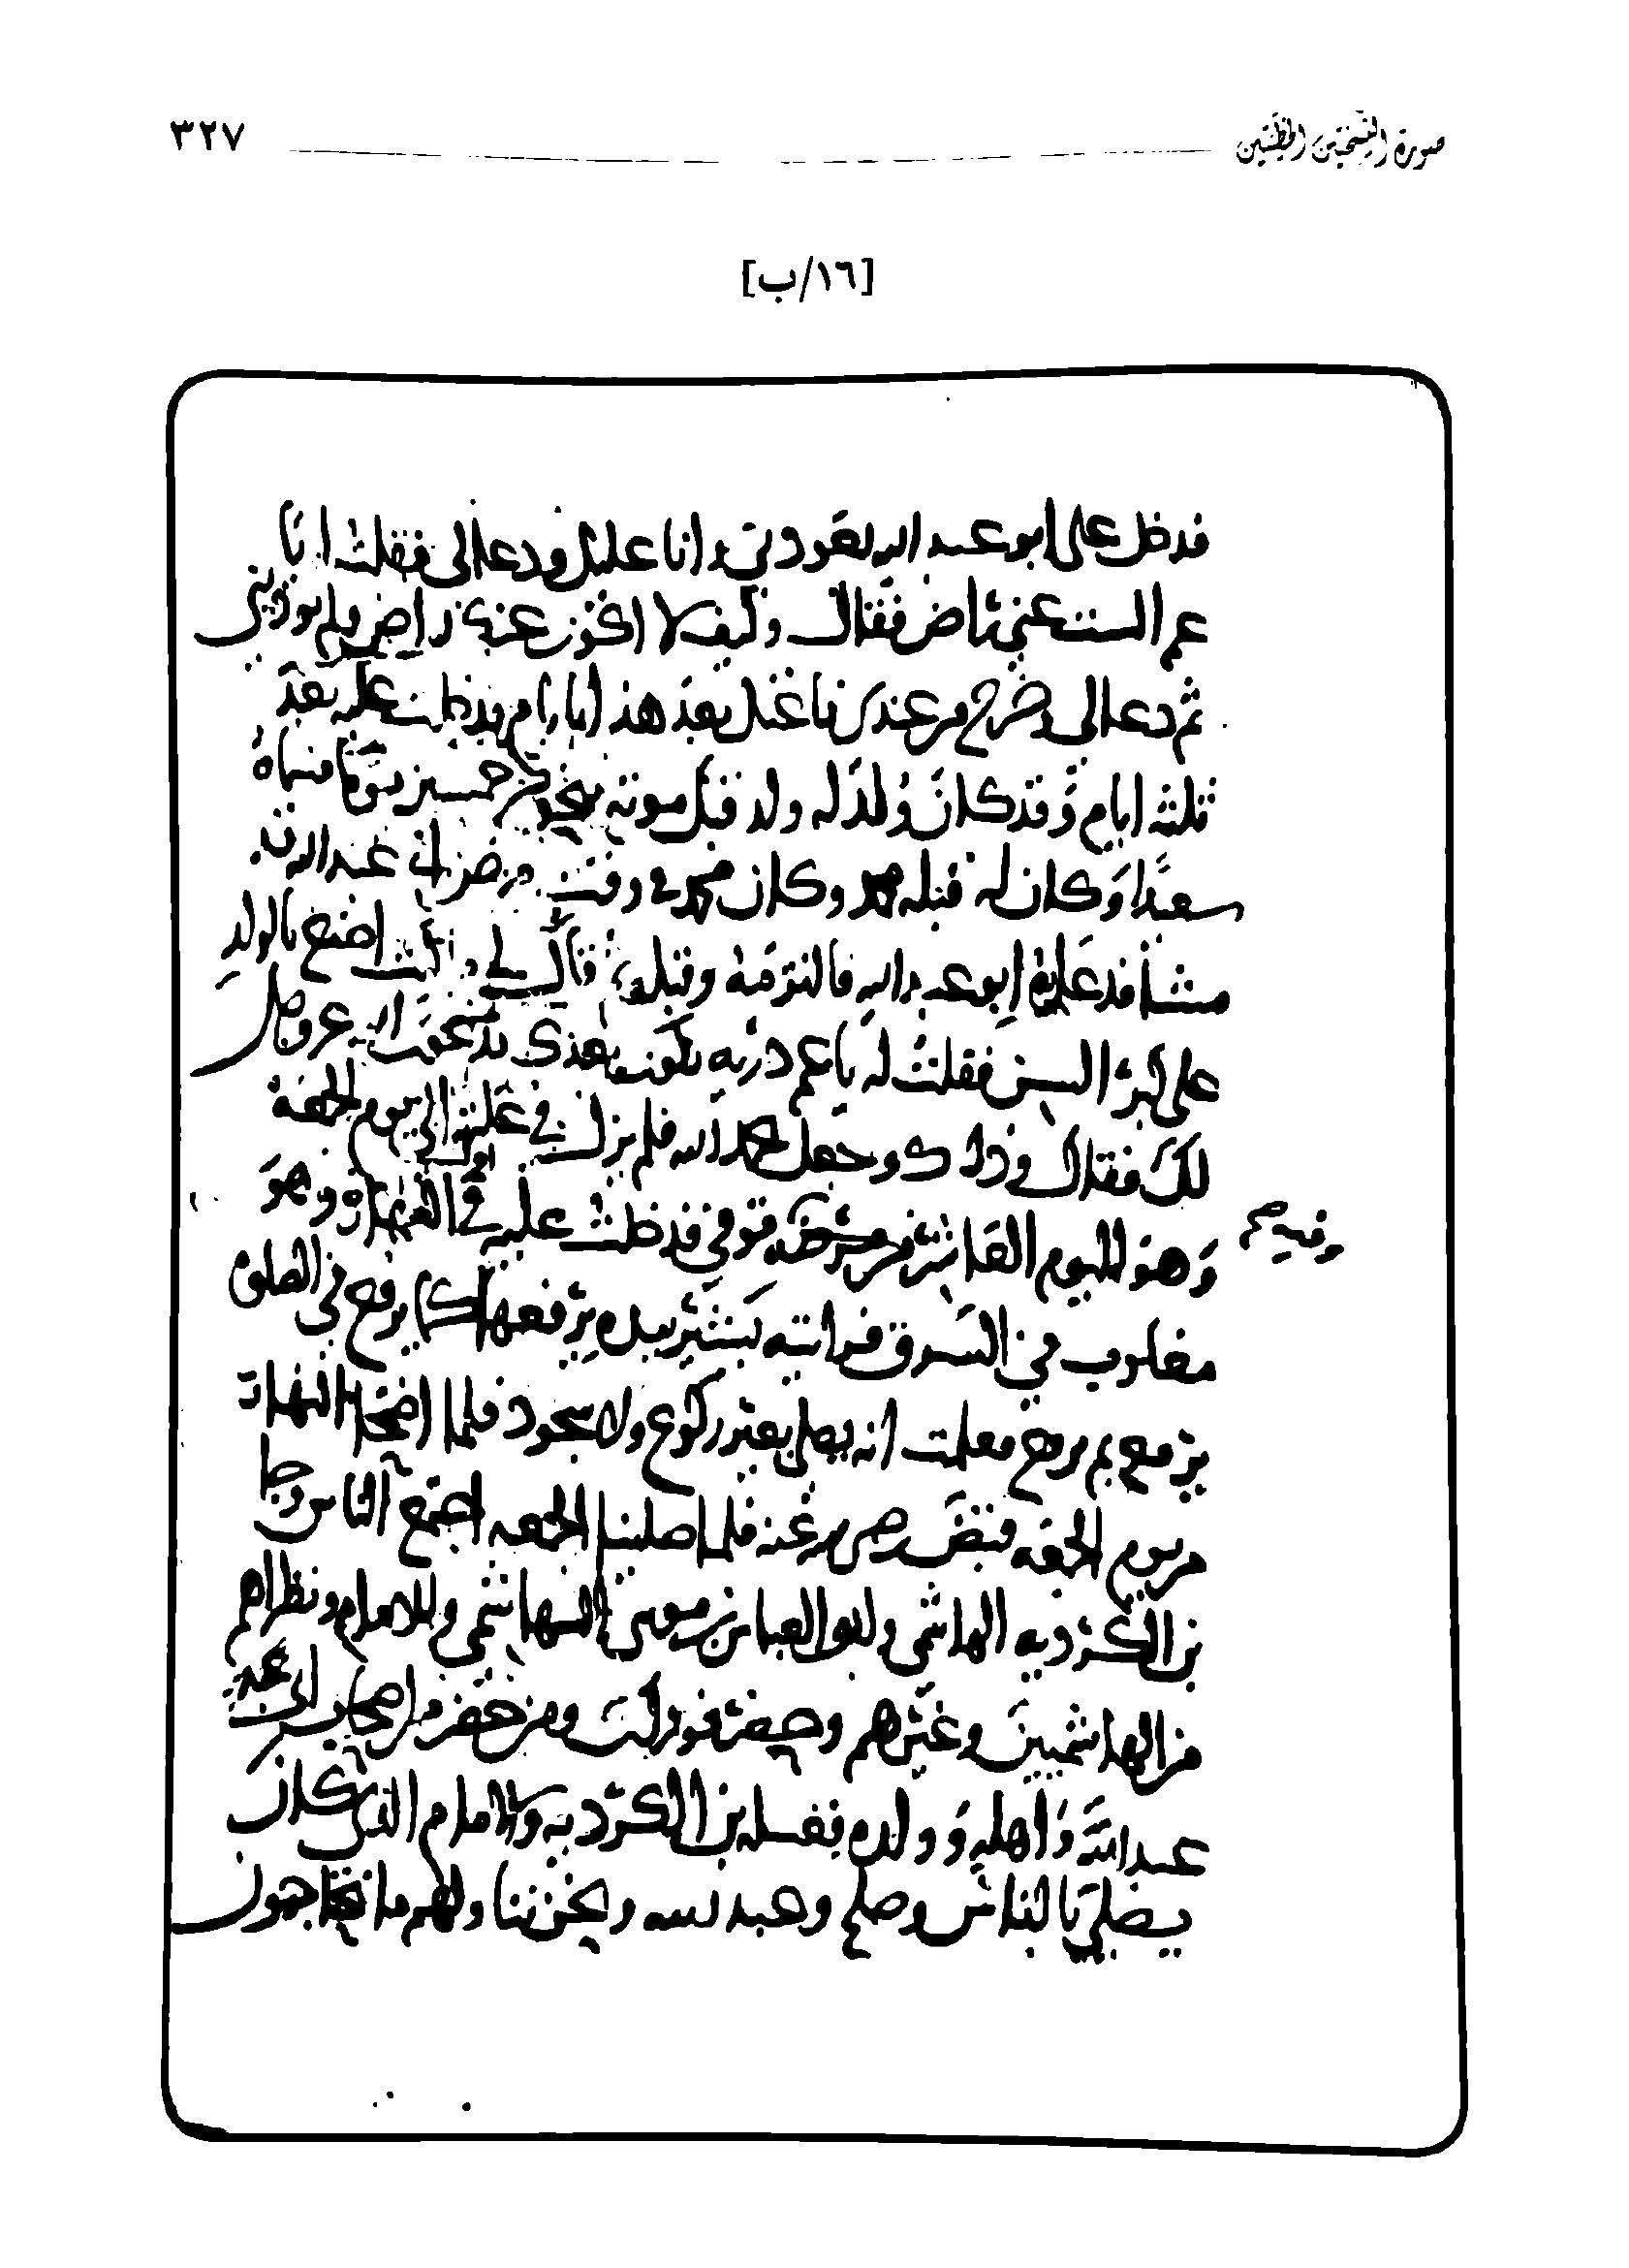 صورة النسختين الخطيتين ٣٢٧
[١٦/ب]
فدخل على ابو عبد الله يعودني وانا عليل ودعا لي فقلت انا
عم الست عني راض فقال وكيف لا اكون عنك راض ولم تؤذيني
ثم دعا لي وخرج من عندي فاعتل بعد هذا ايام فدخلت عليه بعد
ثلثة ايام وقد كان ولد له ولد قبل موته بنحو من خمسين يوما فسماه
سعيدا وكان له قبله محمد وكان محمد في وقت مرض ابي عبد الله قد
مشا فدعا به ابو عبد الله فالتزمه وقبله ثم قال لي ما كنت اصنع بالولد
على كبر السن فقلت له يا عم ذرية يكون بعدك يدعون الله عز وجل
لك فقال وذاك وجعل يحمد الله فلم يزل في علته الى يوم الجمعة
وهو اليوم العاشر من مرضه توفي فدخلت عليه في اول النهار وهو
وفيه صح
مغلوب في السوق فرايته يشير بيده يرفعها كما يرفع في الصلوة
يرفع ثم يرفع فعلمت انه يصلي بغير ركوع ولا سجود فلما اضحا النهار
من يوم الجمعة قبض رحمه الله فلما صلينا الجمعة اجتمع الناس وجا
بن الكردية الهاشمي وابو العباس بن موسى الهاشمي والامام ونظراهم
من الهاشميين وغيرهم وحضر فوران ومن حضر من اصحاب ابي عبد
عبد الله واهله وولده فغسله بن الكردية والامام الذي كان
يصلي بالناس وصلح وعبد الله ونحن نناولهم ما يحتاجون